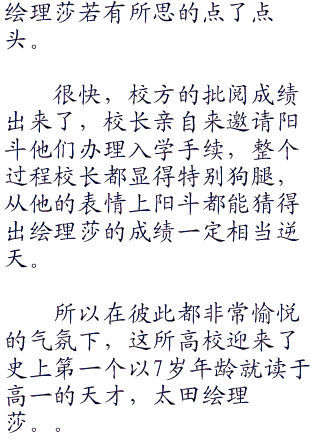 绘理莎若有所思的点了点
头。
很快，校方的批阅成绩
出来了，校长亲自来邀请阳
斗他们办理入学手续，整个
过程校长都显得特别狗腿，
从他的表情上阳斗都能猜得
出绘理莎的成绩一定相当逆
天。
所以在彼此都非常愉悦
的气氛下，这所高校迎来了
史上第一个以7岁年龄就读于
高一的天才，太田绘理
莎。。